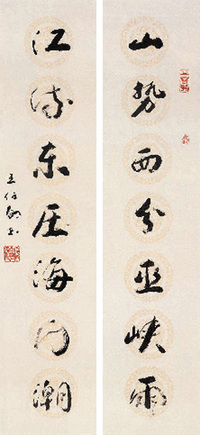 山势西分巫峡雨
江流东压海门潮
王伯敏书